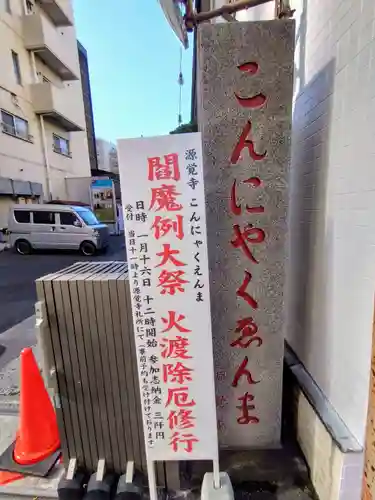 こんにやくゑんま
源覚寺 こんにゃくえんま
閻魔例大祭 火渡除厄修行
日時 一月十六日 十二時開始 参加志納金 三千円
受付 当日十一時より源覚寺札所にて(事前予約も承ります)
源覚寺